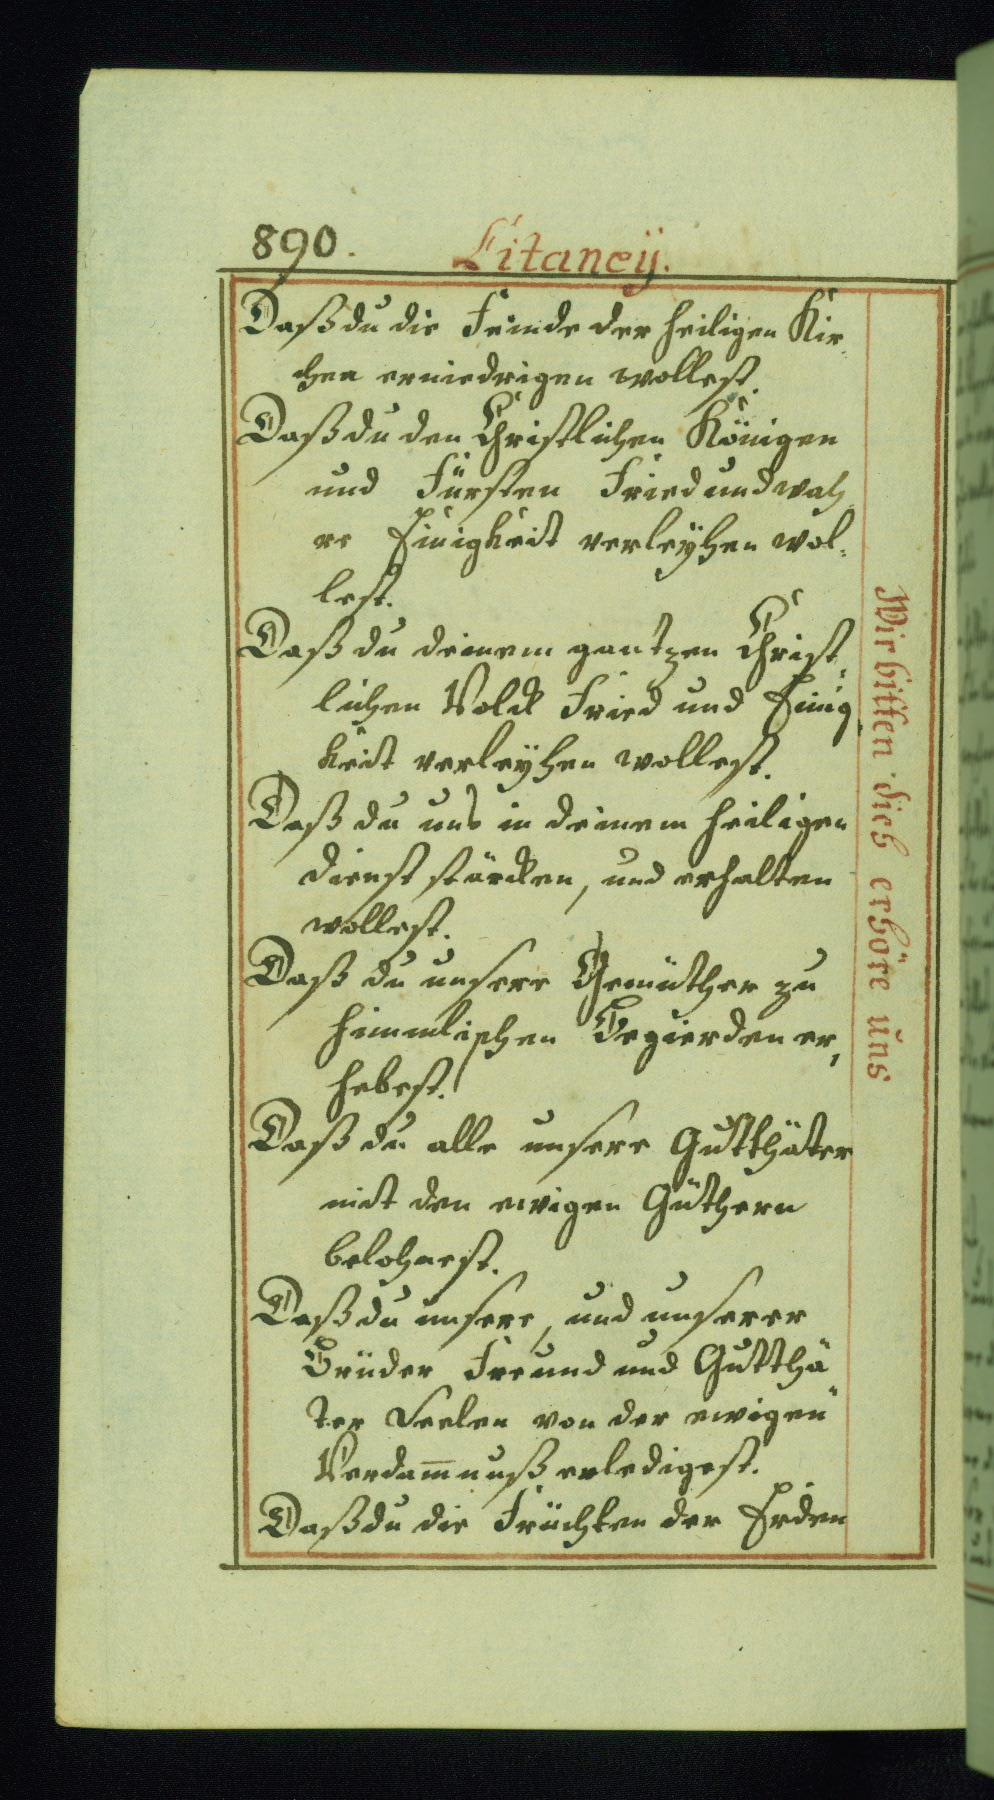 890.
Litaneÿ.
Daß du die Feinde der heiligen Kir
chen erniedrigen wollest.
Daß du den Christlichen Königen
und Fürsten Fried und wah
re Einigkeit verleÿhen wol:
lest.
Daß du deinem gantzen Christ
lichen Volck Fried und Einig
keit verleÿhen wollest.
Daß du uns in deinem heiligen
dienst stärcken, und erhalten
wollest.
Daß du unsere Gemüther zu
himmlischen Begierden er,
hebest.
Daß du alle unsere Gutthäter
mit den ewigen Güthern
belohnest.
Daß du unsere, und unserer
Brüder Freund und Gutthä
ter Seelen von der ewigen
Verdam̅nuß erledigest.
Daß du die Früchten der Erden
Wir bitten dich erhöre uns